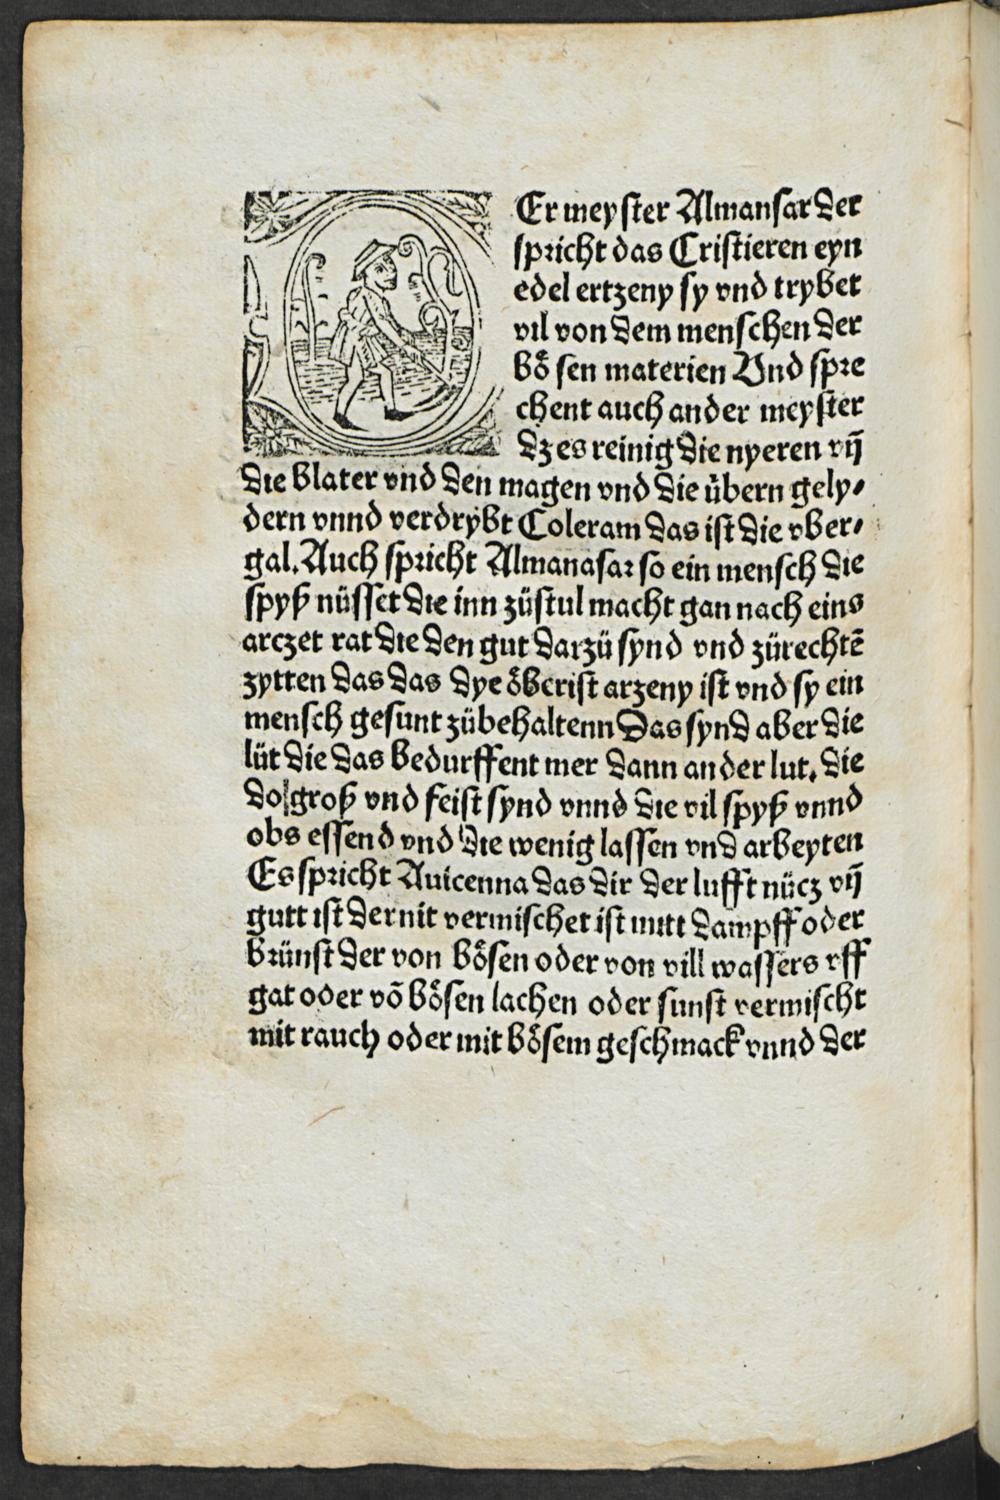 Er meyſter Almanſar der
ſpricht das Criſtieren eyn
edel ertzeny ſy vnd trybet
vil von dem menſchen der
boͤ ſen materien Vnd ſpre
chent auch ander meyſter
dz es reinig die nyeren vn̄
die blater vnd den magen vnd die übern gely⸗
dern vnnd verdrybt Coleram das iſt die vber⸗
gal. Auch ſpricht Almanaſar ſo ein menſch die
ſpyß nüſſet die inn züſtul macht gan nach eins
arczet rat die den gut darzü ſynd vnd zürechtē
zytten das das dye oͤbcriſt arzeny iſt vnd ſy ein
menſch geſunt zübehaltenn Das ſynd aber die
lüt die das bedurffent mer dann an der lut. die
do groß vnd feiſt ſynd vnnd die vil ſpyß vnnd
obs eſſend vnd die wenig laſſen vnd arbeyten
Es ſpricht Auicenna das dir der lufft nücz vn̄
gutt iſt der nit vermiſchet iſt mitt dampff oder
brünſt der von boͤſen oder von vill waſſers vff
gat oder vō boͤſen lachen oder ſunſt vermiſcht
mit rauch oder mit boͤſem geſchmack vnnd der